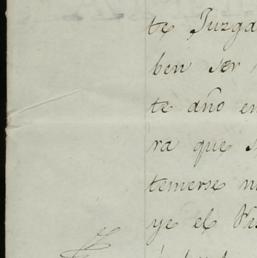 te Juzga
ben ser
te año en
ra que s
temerse n
ye el Ves